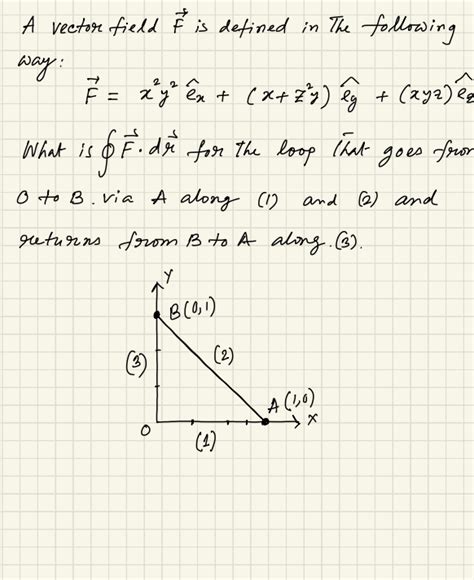 A vector field F⃗ is defined in The following
way:
F⃗ = x²y² ê_x + (x+z²y) ê_y + (xyz) ê_z
What is ∮ F⃗. dr⃗ for The loop That goes from
O to B. via A along (1) and (2) and
returns from B to A along.(3).
Y
B(0,1)
(3)
(2)
A(1,0)
X
O
(1)